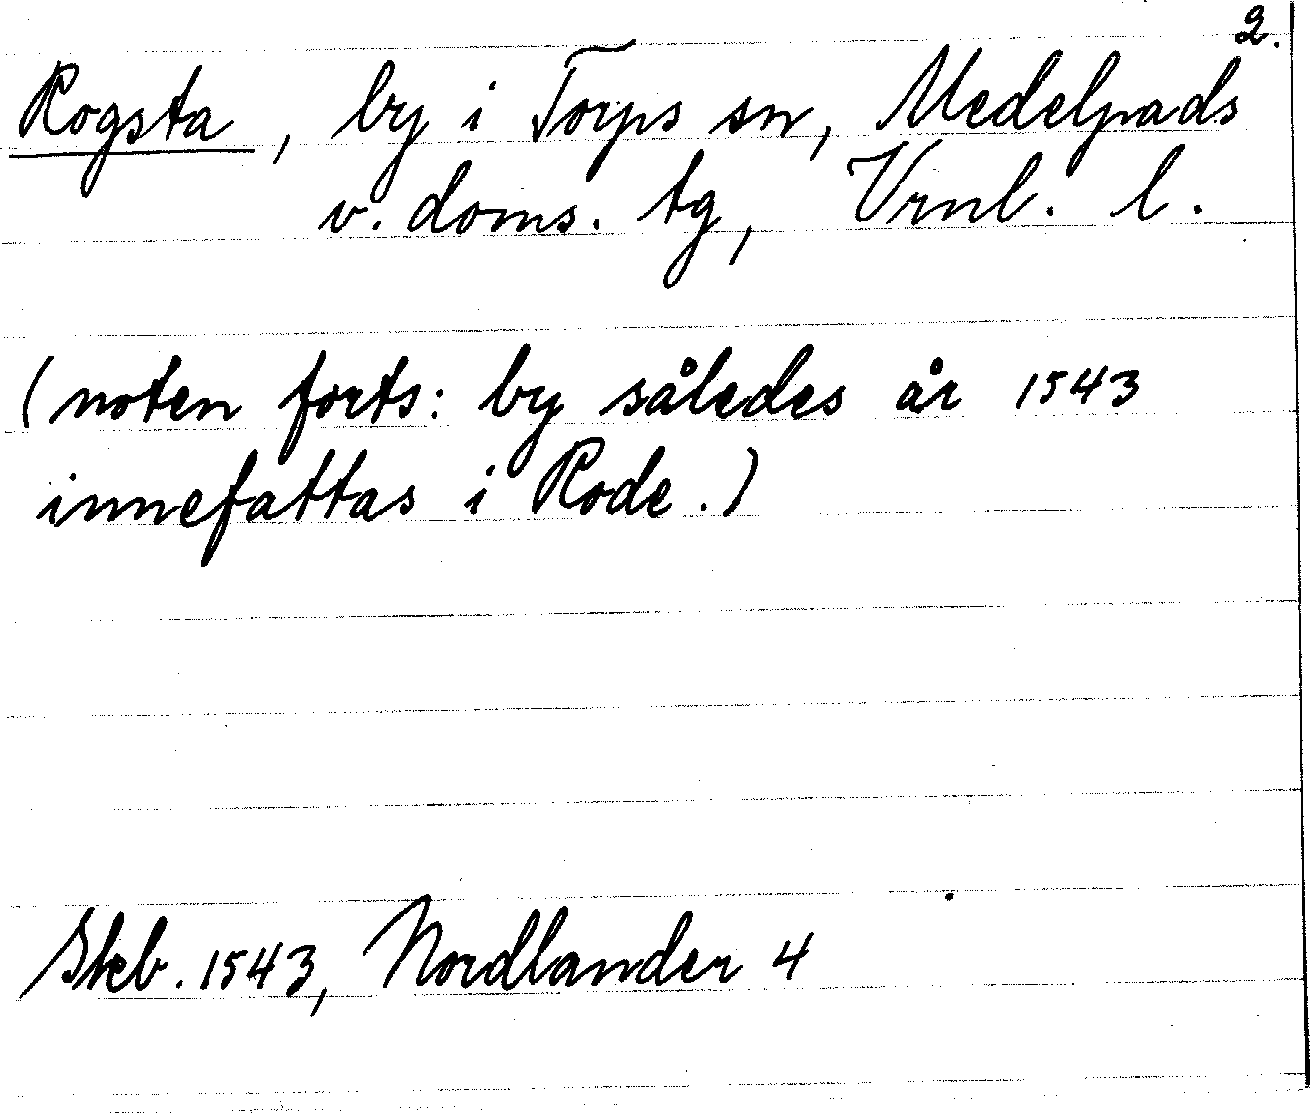 2.
Rogsta, by i Torps sn, Medelpads
v. doms. tg, Vrnl. l.
(noten forts: by således år 1543
innefattas i Rode.)
Skb. 1543, Nordlander 4